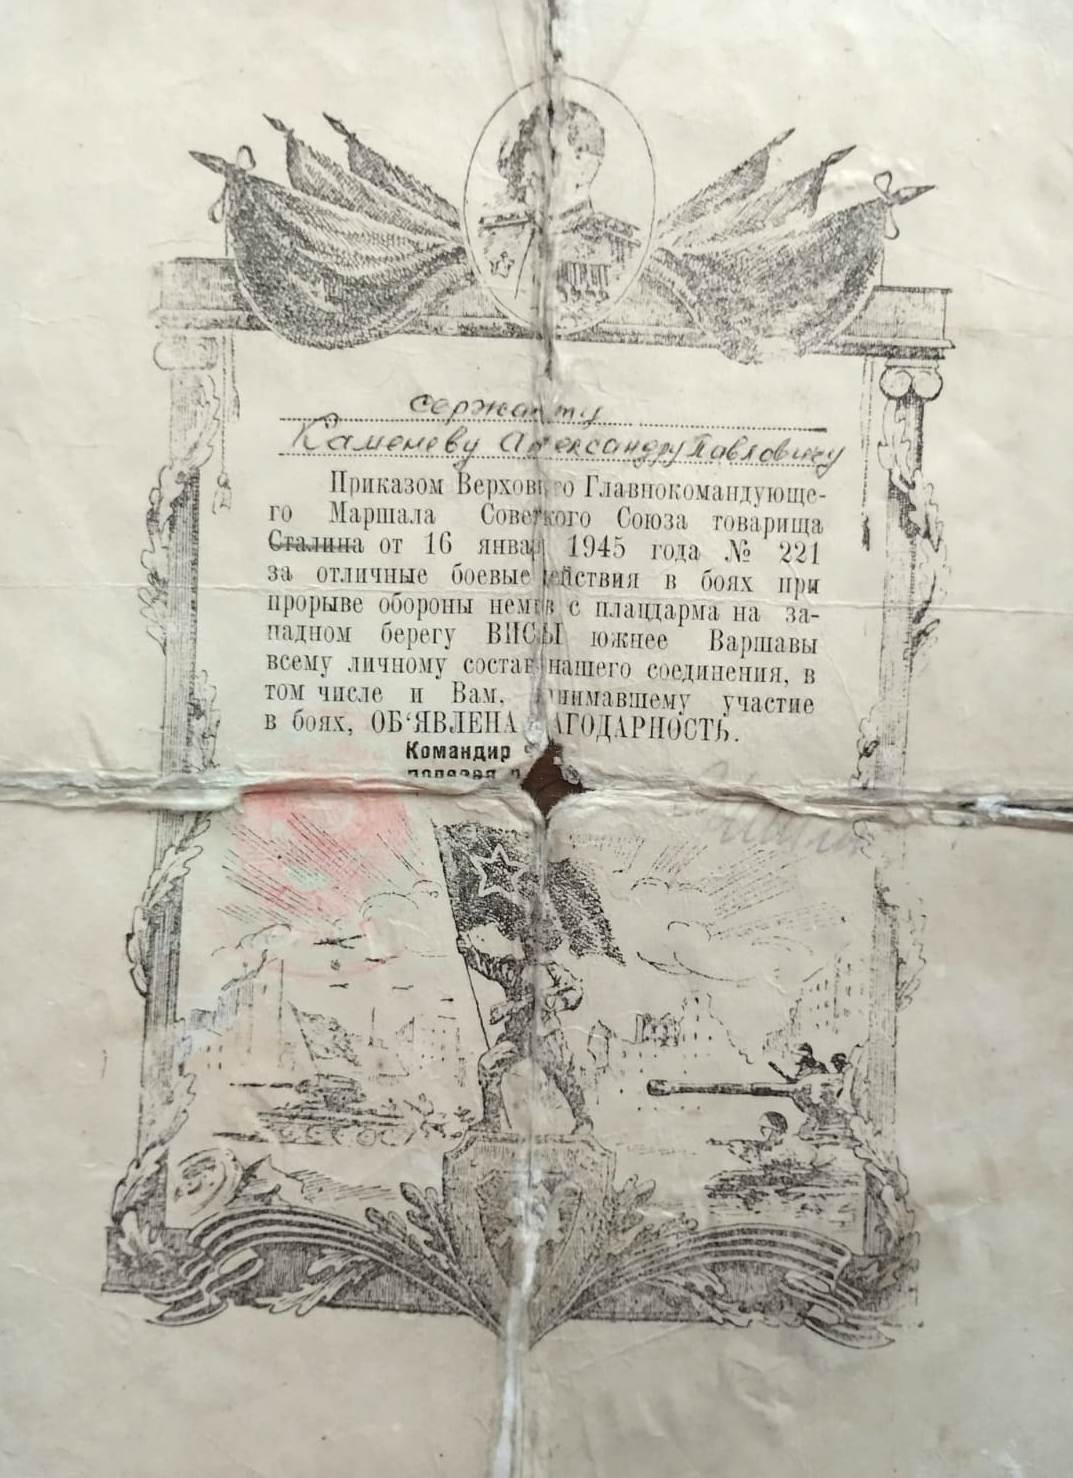 сержанту
Каменеву Александру Павловичу
Приказом Верховного Главнокомандующе-
го Маршала Советского Союза товарища
Сталина от 16 января 1945 года № 221
за отличные боевые действия в боях при
прорыве обороны немцев с плацдарма на за-
падном берегу ВИСЛЫ южнее Варшавы
всему личному составу нашего соединения, в
том числе и Вам, принимавшему участие
в боях, ОБ‘ЯВЛЕНА БЛАГОДАРНОСТЬ.
Командир